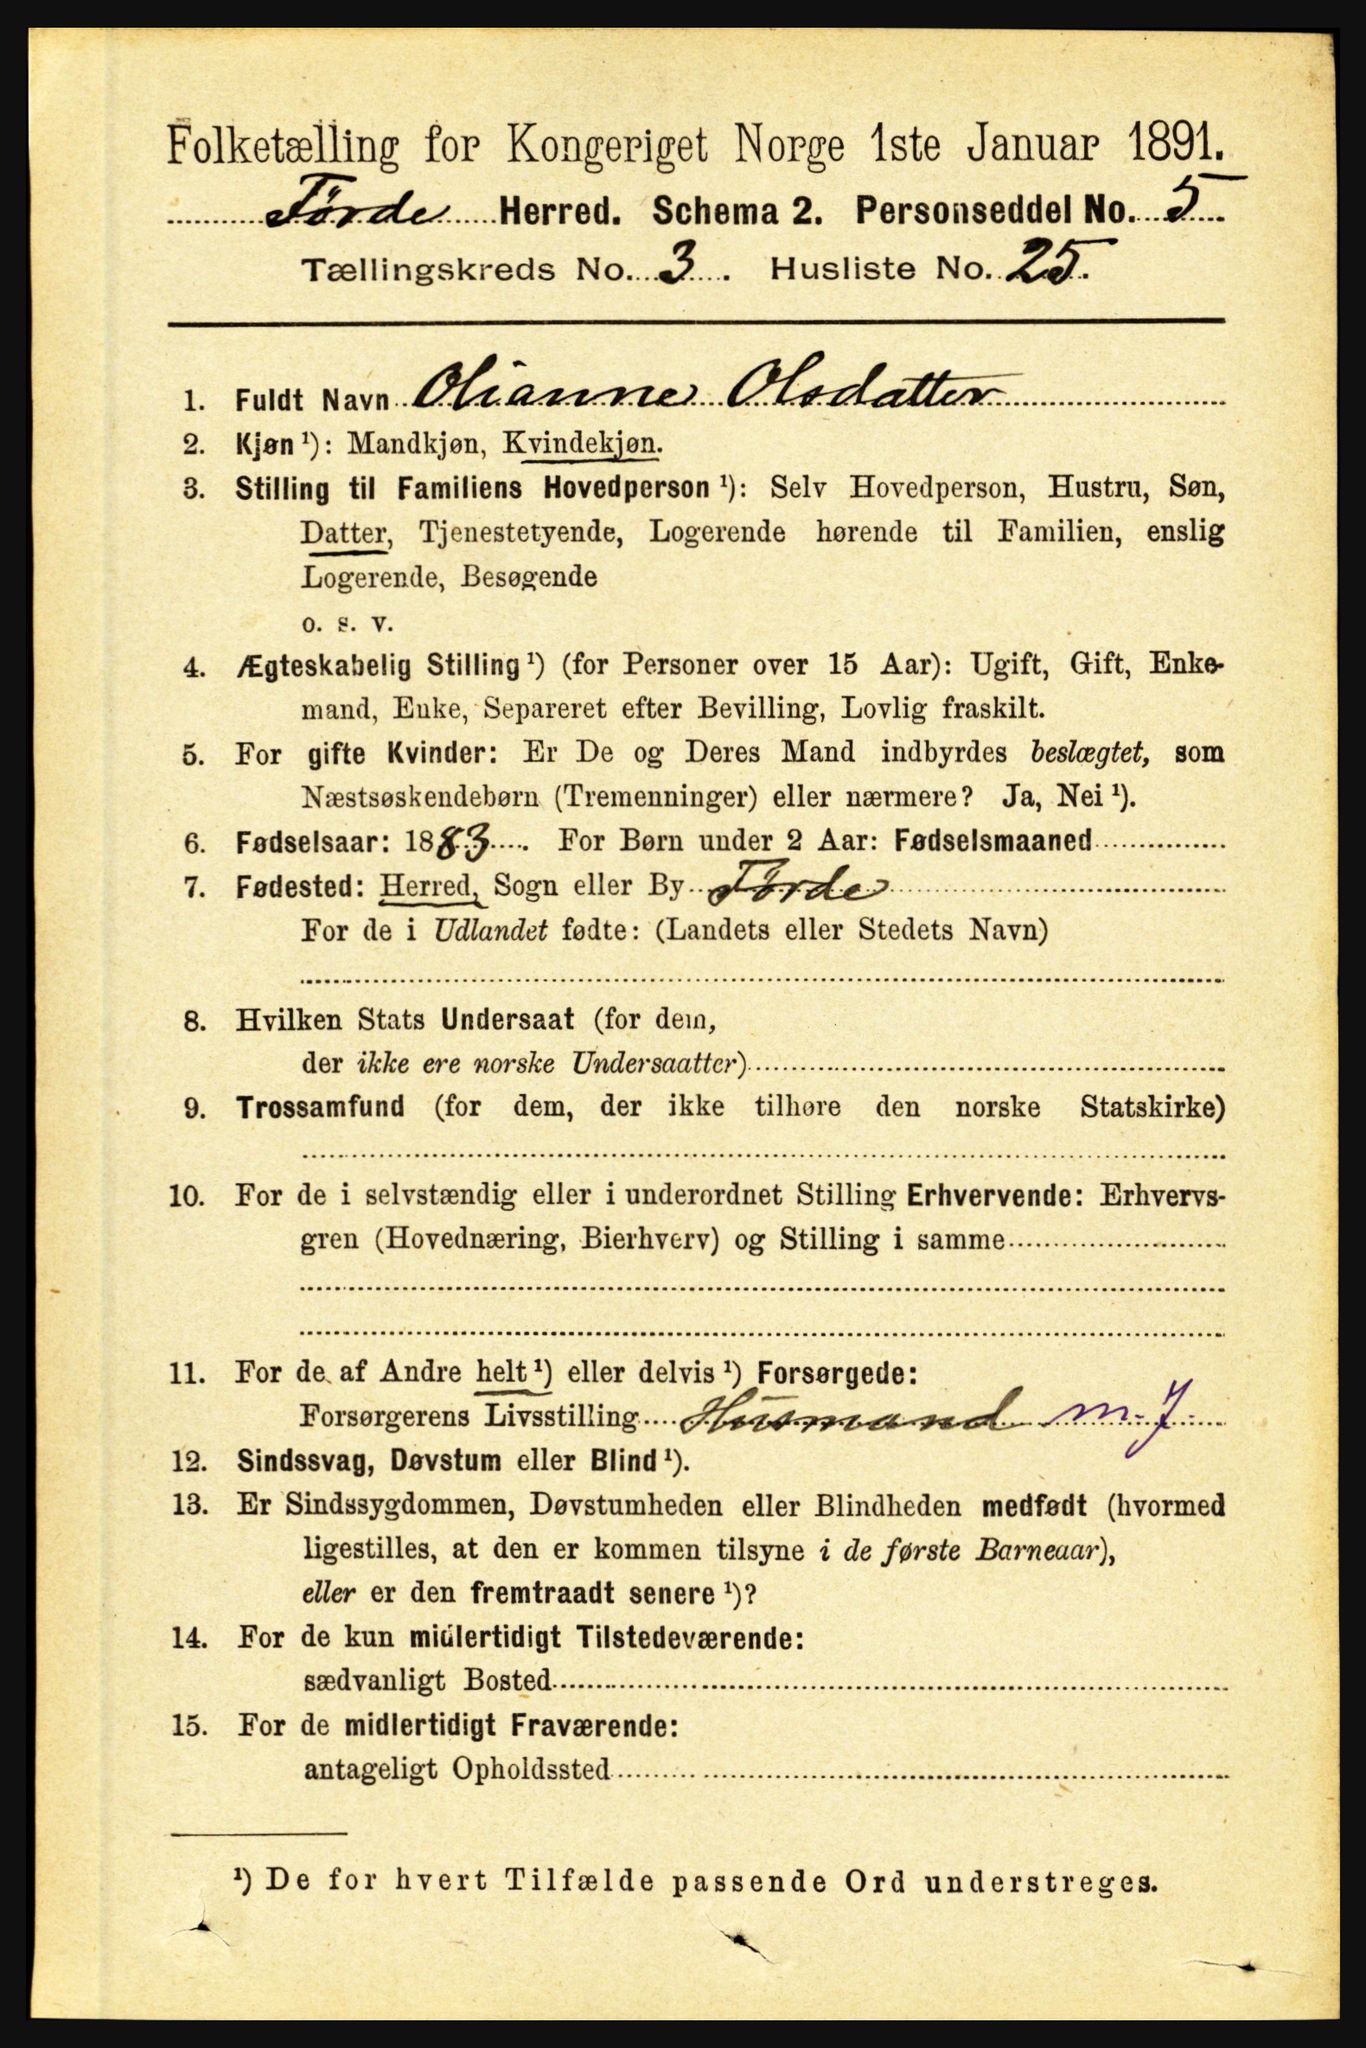 Folketælling for Kongeriget Norge 1ste Januar 1891.
Førde Herred. Schema 2. Personseddel No. 5
Tællingskreds No. 3. Husliste No. 25.
1. Fuldt Navn Olianne Olsdatter
2. Kjøn ¹): Mandkjøn, Kvindekjøn.
3. Stilling til Familiens Hovedperson ¹): Selv Hovedperson, Hustru, Søn,
Datter, Tjenestetyende, Logerende hørende til Familien, enslig
Logerende, Besøgende
o. s. v.
4. Ægteskabelig Stilling ¹) (for Personer over 15 Aar): Ugift, Gift, Enke-
mand, Enke, Separeret efter Bevilling, Lovlig fraskilt.
5. For gifte Kvinder: Er De og Deres Mand indbyrdes beslægtet, som
Næstsøskendebørn (Tremenninger) eller nærmere? Ja, Nei ¹).
6. Fødselsaar: 1883. For Børn under 2 Aar: Fødselsmaaned
7. Fødested: Herred, Sogn eller By Førde
For de i Udlandet fødte: (Landets eller Stedets Navn)
8. Hvilken Stats Undersaat (for dem,
der ikke ere norske Undersaatter)
9. Trossamfund (for dem, der ikke tilhøre den norske Statskirke)
10. For de i selvstændig eller i underordnet Stilling Erhvervende: Erhvervs-
gren (Hovednæring, Bierhverv) og Stilling i samme
11. For de af Andre helt ¹) eller delvis ¹) Forsørgede:
Forsørgerens Livsstilling Husmand m. J.
12. Sindssvag, Døvstum eller Blind ¹).
13. Er Sindssygdommen, Døvstumheden eller Blindheden medfødt (hvormed
ligestilles, at den er kommen tilsyne i de første Barneaar),
eller er den fremtraadt senere ¹)?
14. For de kun midlertidigt Tilstedeværende:
sædvanligt Bosted
15. For de midlertidigt Fraværende:
antageligt Opholdssted
¹) De for hvert Tilfælde passende Ord understreges.